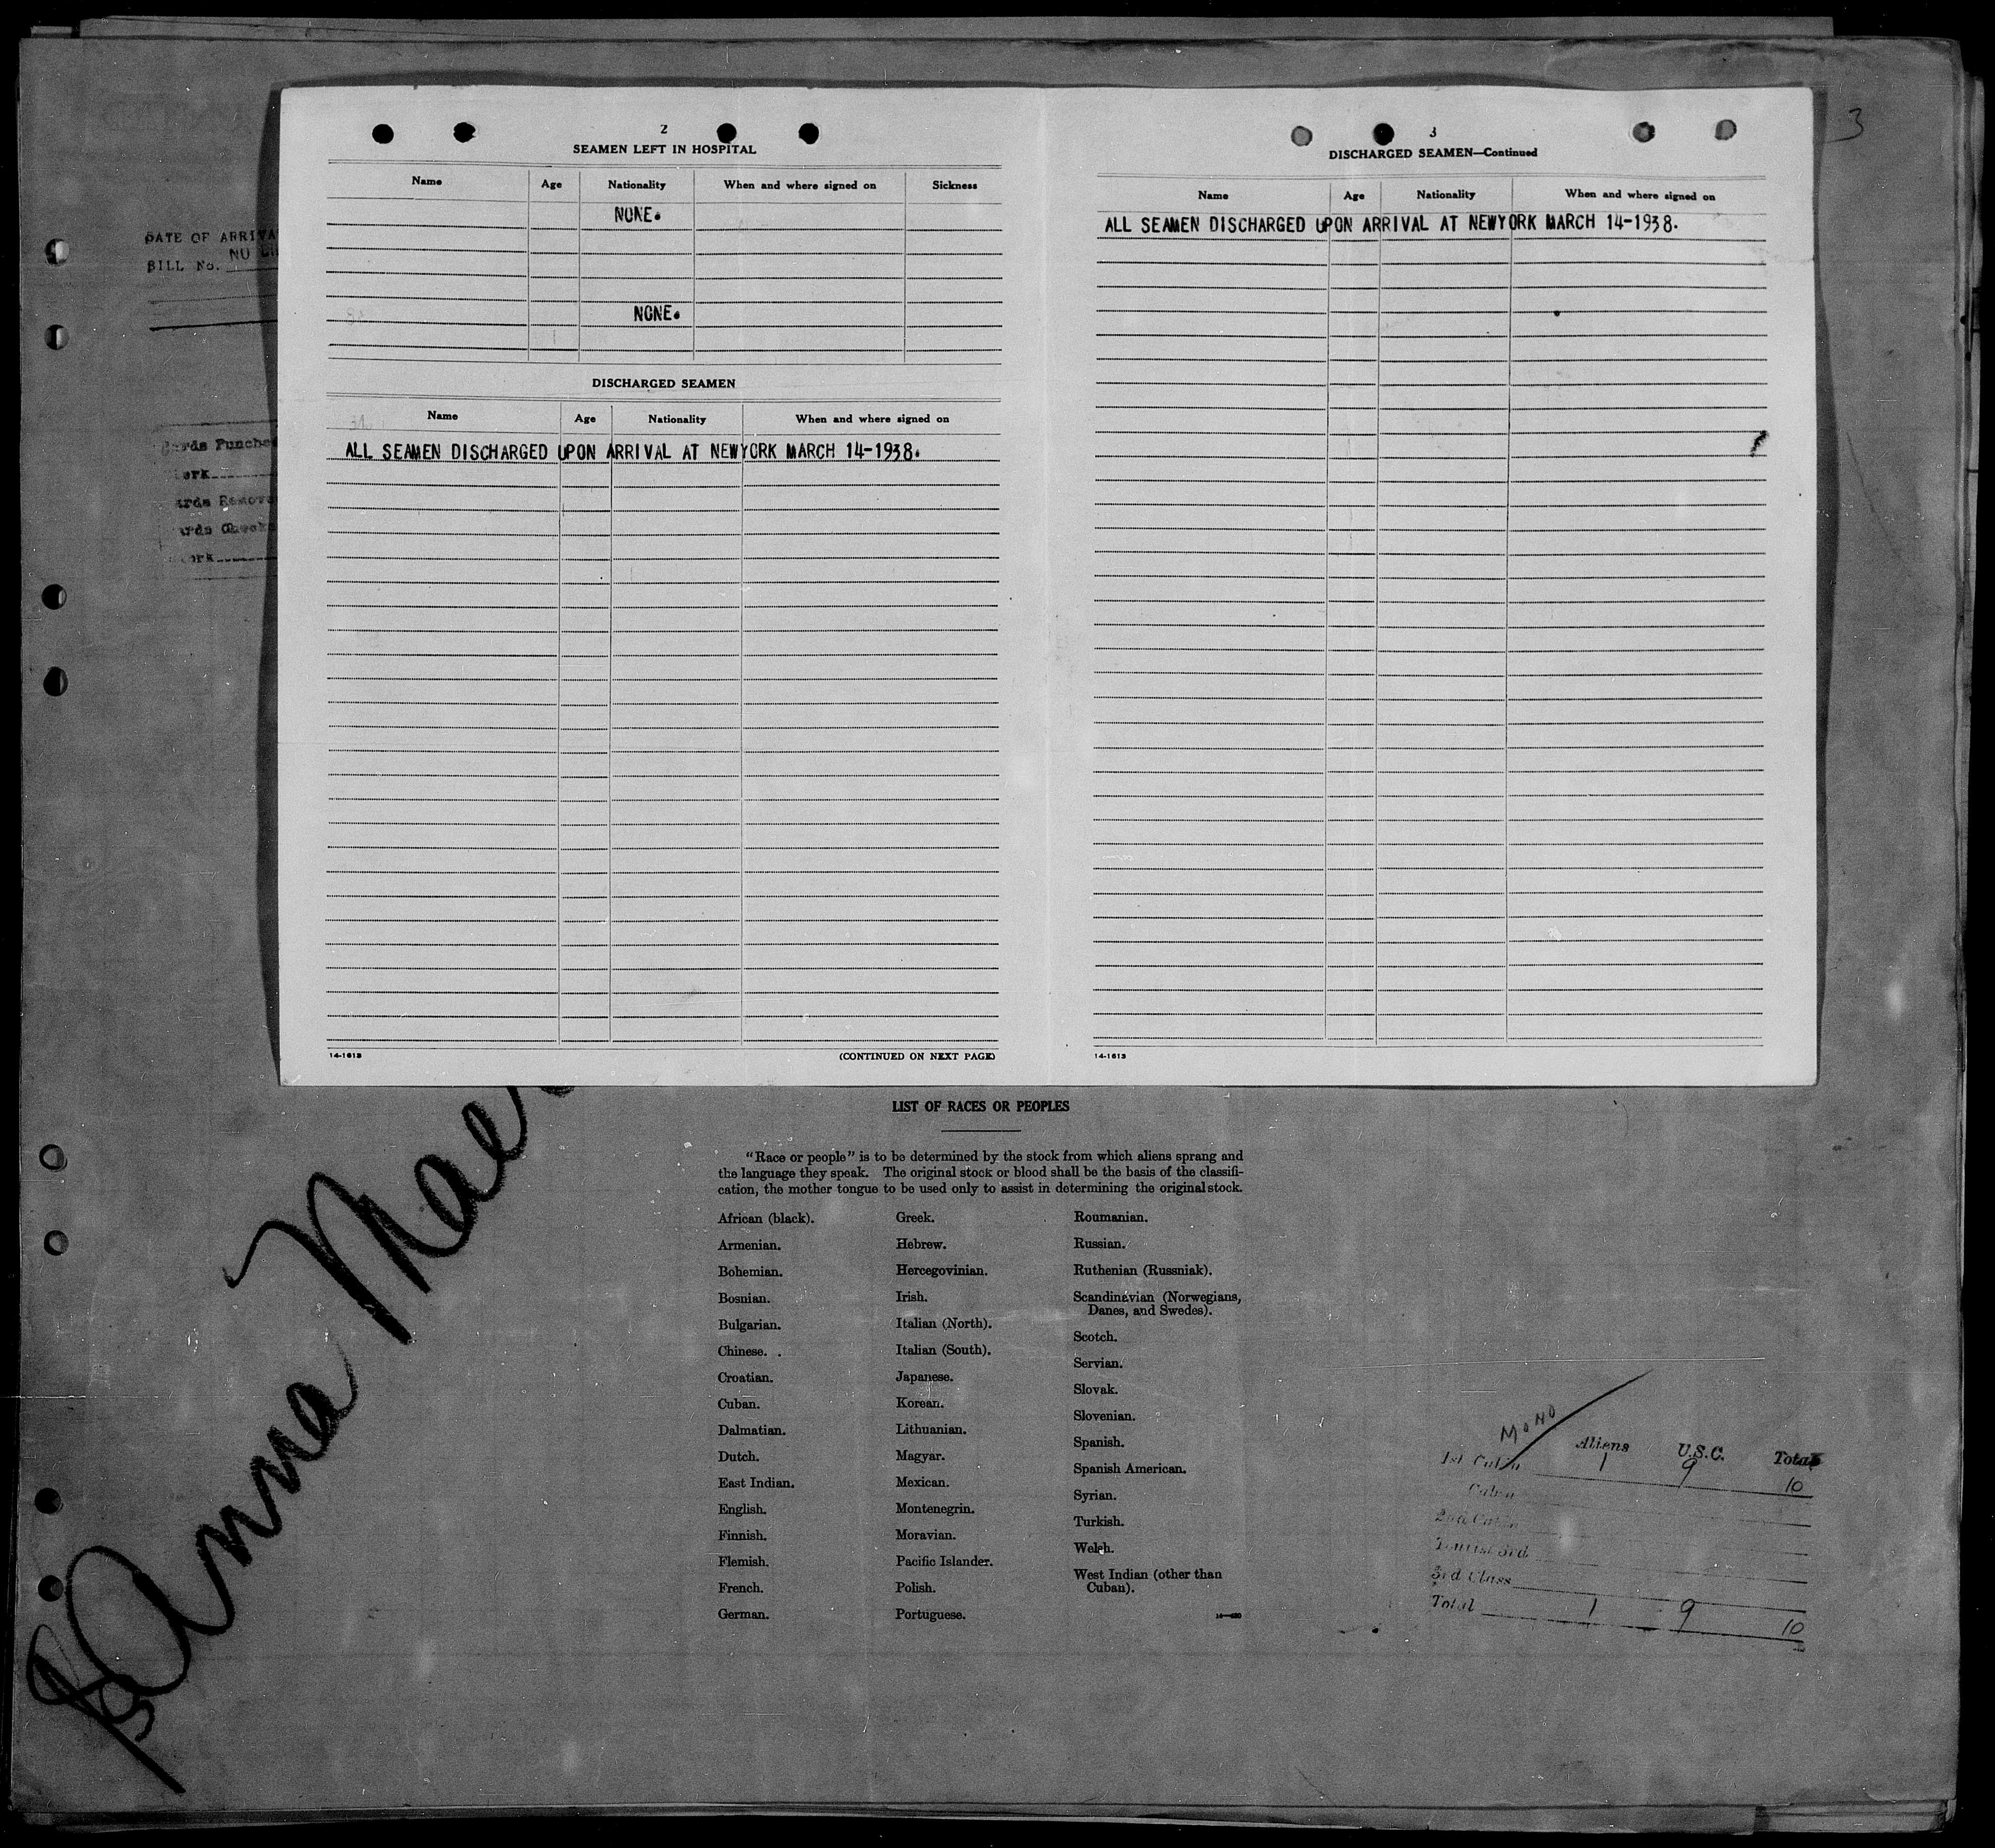 3
DATE OF ARRIVA
BILL No. NO
2
SEAMEN LEFT IN HOSPITAL
Name Age Nationality When and where signed on Sickness
NONE.
NONE.
DISCHARGED SEAMEN
Name Age Nationality When and where signed on
ALL SEAMEN DISCHARGED UPON ARRIVAL AT NEWYORK MARCH 14-1938.
14-1613 (CONTINUED ON NEXT PAGE)
3
DISCHARGED SEAMEN—Continued
Name Age Nationality When and where signed on
ALL SEAMEN DISCHARGED UPON ARRIVAL AT NEWYORK MARCH 14-1938.
14-1613
LIST OF RACES OR PEOPLES
"Race or people" is to be determined by the stock from which aliens sprang and
the language they speak. The original stock or blood shall be the basis of the classifi-
cation, the mother tongue to be used only to assist in determining the original stock.
African (black).
Armenian.
Bohemian.
Bosnian.
Bulgarian.
Chinese.
Croatian.
Cuban.
Dalmatian.
Dutch.
East Indian.
English.
Finnish.
Flemish.
French.
German.
Greek.
Hebrew.
Hercegovinian.
Irish.
Italian (North).
Italian (South).
Japanese.
Korean.
Lithuanian.
Magyar.
Mexican.
Montenegrin.
Moravian.
Pacific Islander.
Polish.
Portuguese.
Roumanian.
Russian.
Ruthenian (Russniak).
Scandinavian (Norwegians,
Danes, and Swedes).
Scotch.
Servian.
Slovak.
Slovenian.
Spanish.
Spanish American.
Syrian.
Turkish.
Welsh.
West Indian (other than
Cuban).
Anna Mae
MONO
Aliens U.S.C. Total
1st Cabin 1 9 10
Cabin
2nd Cabin
Tourist 3rd
3rd Class
Total 1 9 10